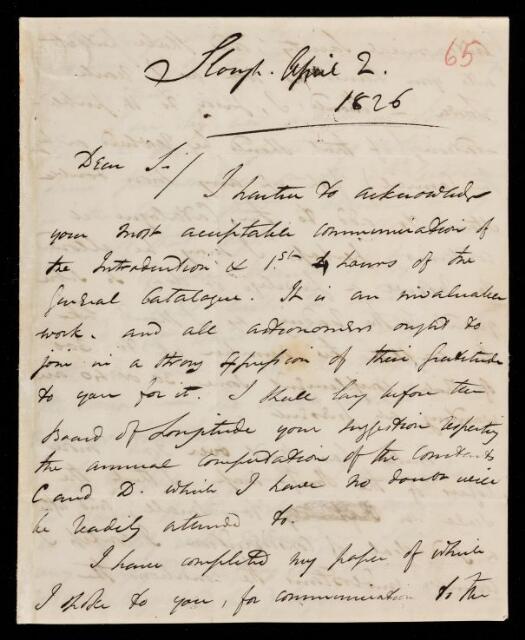 65
Slough. April 2.
1826
Dear Sir/ I hasten to acknowledge
your most acceptable communication of
the Introduction & 1.st 4 hours of the
General Catalogue. It is an invaluable
work. and all astronomers ought to
join in a strong expression of their gratitude
to you for it. I shall lay before the
Board of Longitude your suggestion respecting
the annual computation of the Constants
C and D. which I have no doubt will
be readily attended to.
I have completed my paper of which
I spoke to you, for communication to the